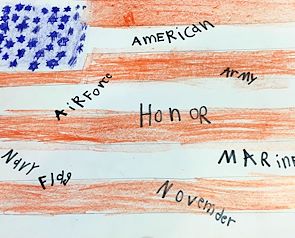 AMERICAn
ARmy
AiRForce
HonOR
MARinE
NAvy
Flag
Novemder